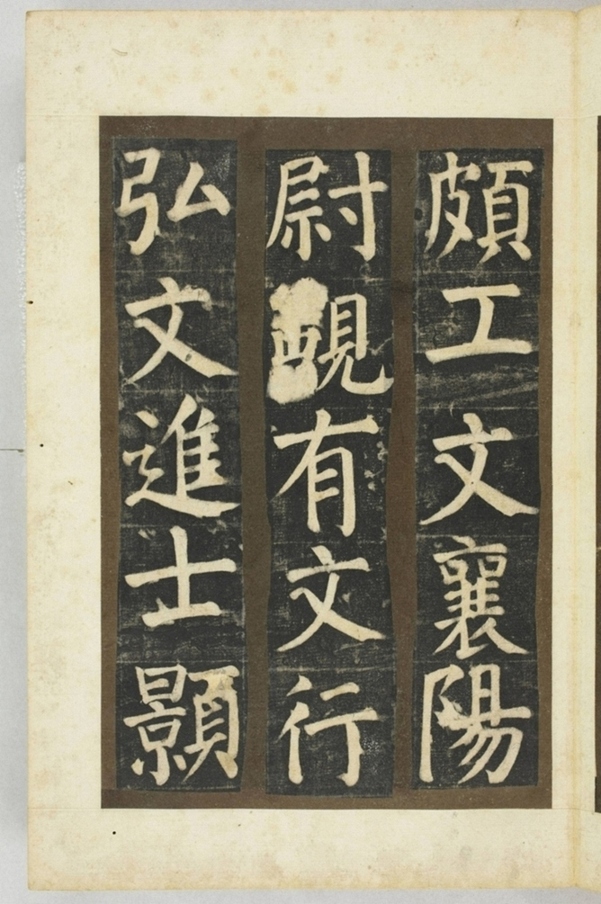 頗工文襄陽
尉有文行
弘文進士顥